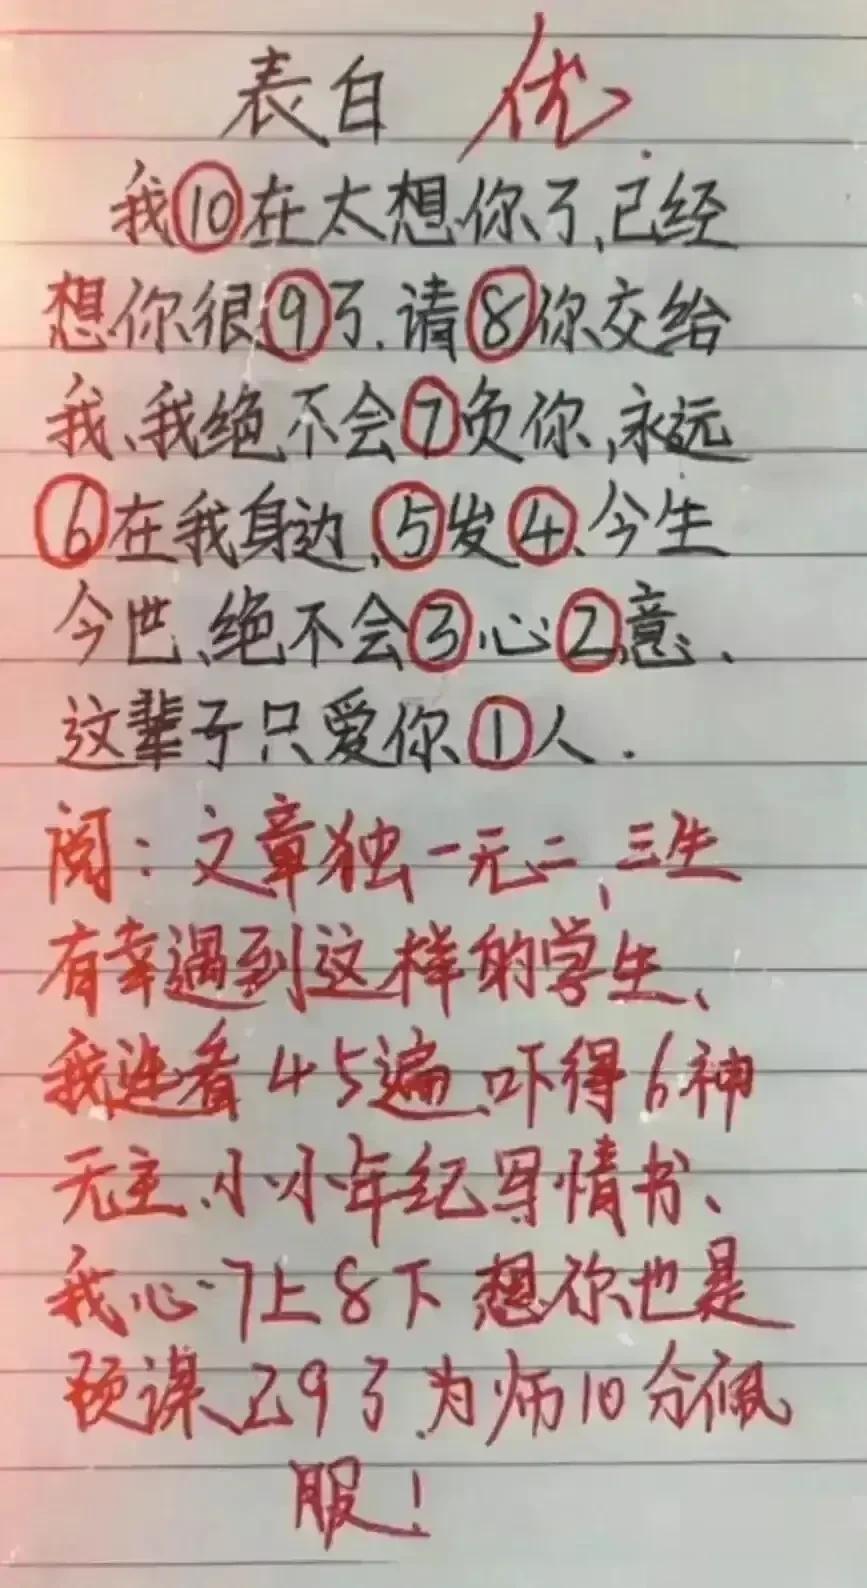 表白 优
我⑩在太想你了,已经
想你很⑨了.请⑧你交给
我、我绝不会⑦负你,永远
⑥在我身边、⑤发④、今生
今世、绝不会③心②意、
这辈子只爱你①人.
阅:文章独一无二、三生
有幸遇到这样的学生、
我连看45遍、吓得6神
无主、小小年纪写情书、
我心7上8下 想你也是
预谋已9了.为师10分佩
服!